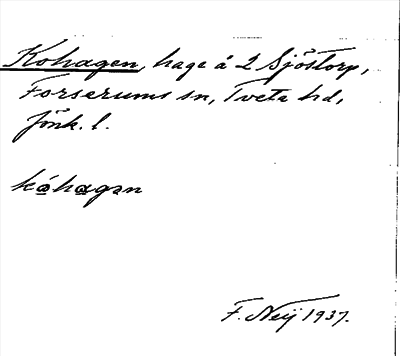 Kohagen, hage å 2 Sjöstorp,
Forserums sn, Tveta hd,
Jönk. l.
kóhagən
F. Neij 1937.